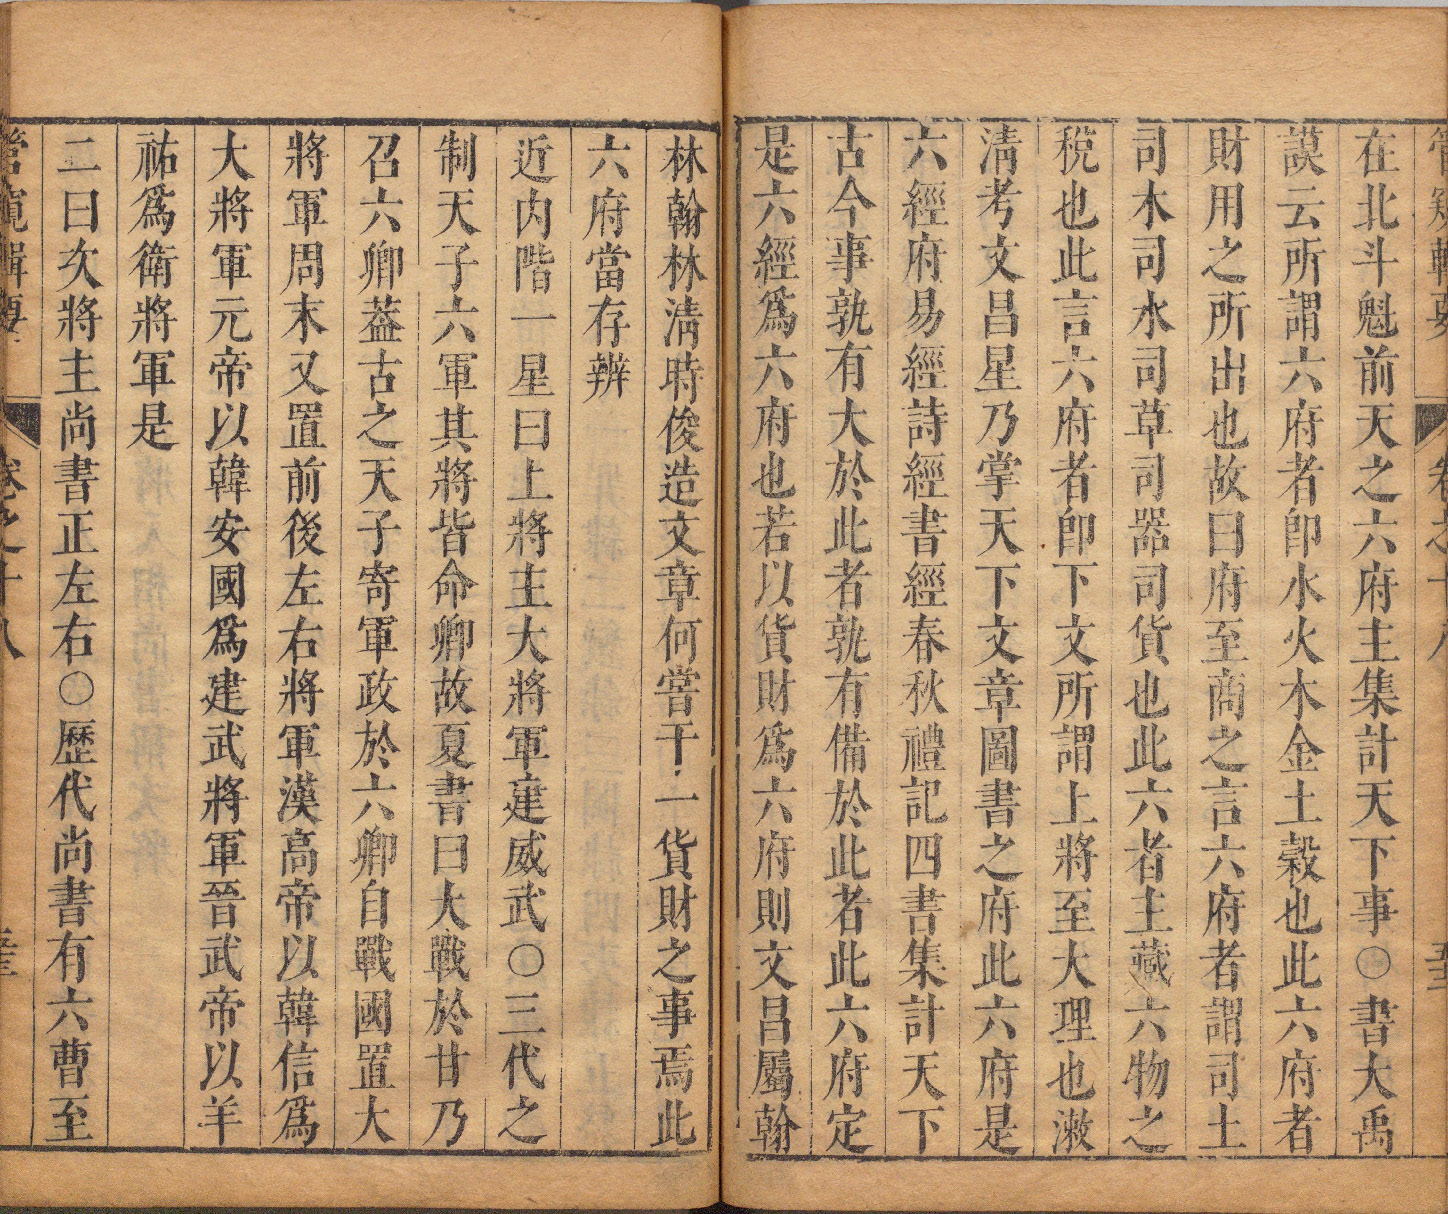 管窺輯要 卷之十八
在北斗魁前天之六府主集計天下事○書大禹
謨云所謂六府者卽水火木金土穀也此六府者
財用之所出也故曰府至商之言六府者謂司土
司木司水司草司器司貨也此六者主藏六物之
稅也此言六府者卽下文所謂上將至大理也潄
淸考文昌星乃掌天下文章圖書之府此六府是
六經府易經詩經書經春秋禮記四書集計天下
古今事孰有大於此者孰有備於此者此六府定
是六經爲六府也若以貨財爲六府則文昌屬翰
林翰林淸時俊造文章何嘗干一貨財之事焉此
六府當存辨
近内階一星曰上將主大將軍建威武○三代之
制天子六軍其將皆命卿故夏書曰大戰於甘乃
召六卿葢古之天子寄軍政於六卿自戰國置大
將軍周末又置前後左右將軍漢高帝以韓信爲
大將軍元帝以韓安國爲建武將軍晉武帝以羊
祐爲衛將軍是
二曰次將主尚書正左右○歷代尚書有六曹至
管窺輯要 卷之十八